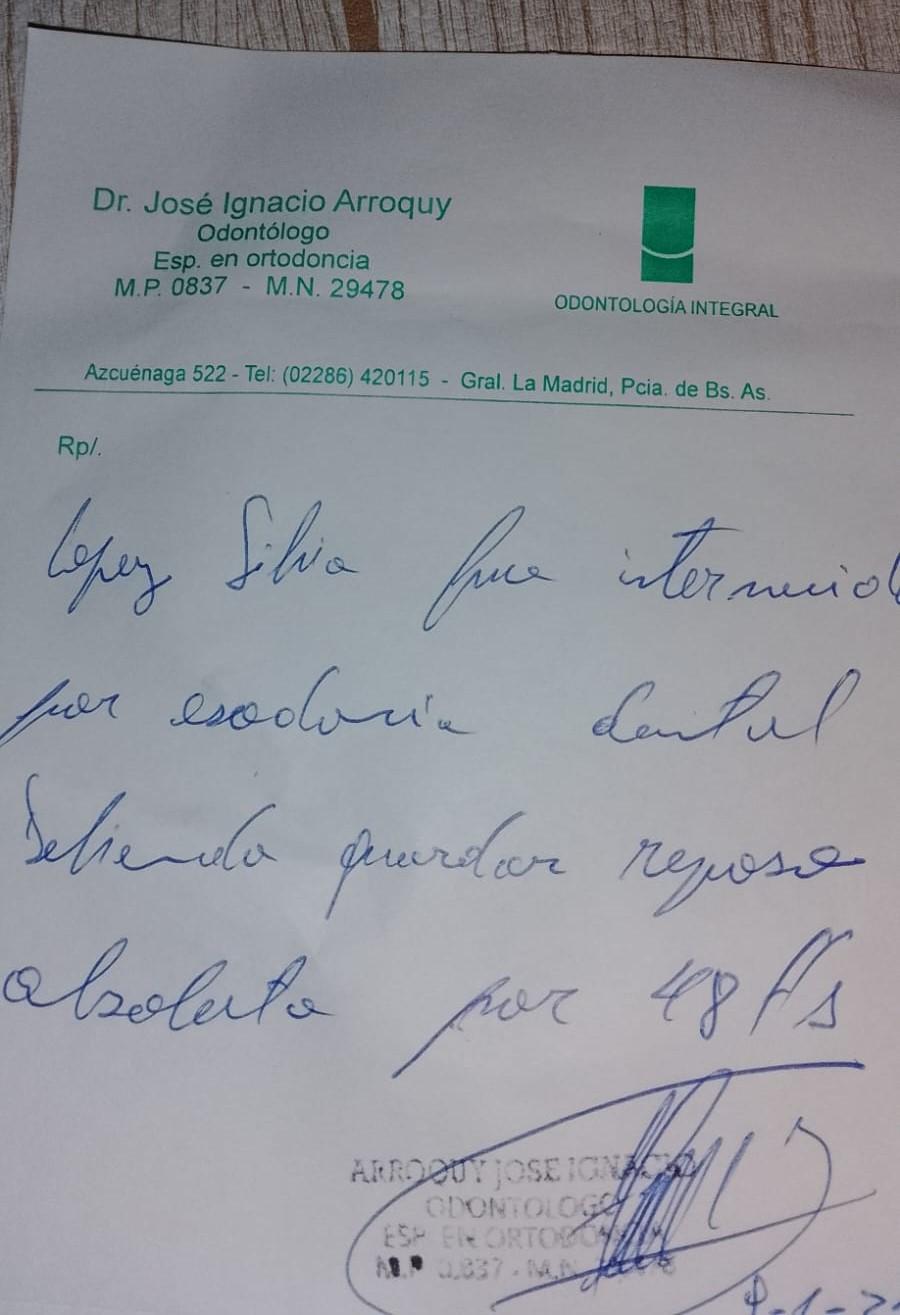 Dr. José Ignacio Arroquy
Odontólogo
Esp. en ortodoncia
M.P. 0837 - M.N. 29478
ODONTOLOGÍA INTEGRAL
Azcuénaga 522 - Tel: (02286) 420115 - Gral. La Madrid, Pcia. de Bs. As.
Rp/.
Lopez Silvia fue intervenid
por exodoncia dental
Debiendo guardar reposo
absoluto por 48 Hs
ARROQUY JOSE IGNACIO
ODONTOLOGO
ESP. EN ORTODONCIA
M.P 0.837 - M.N.